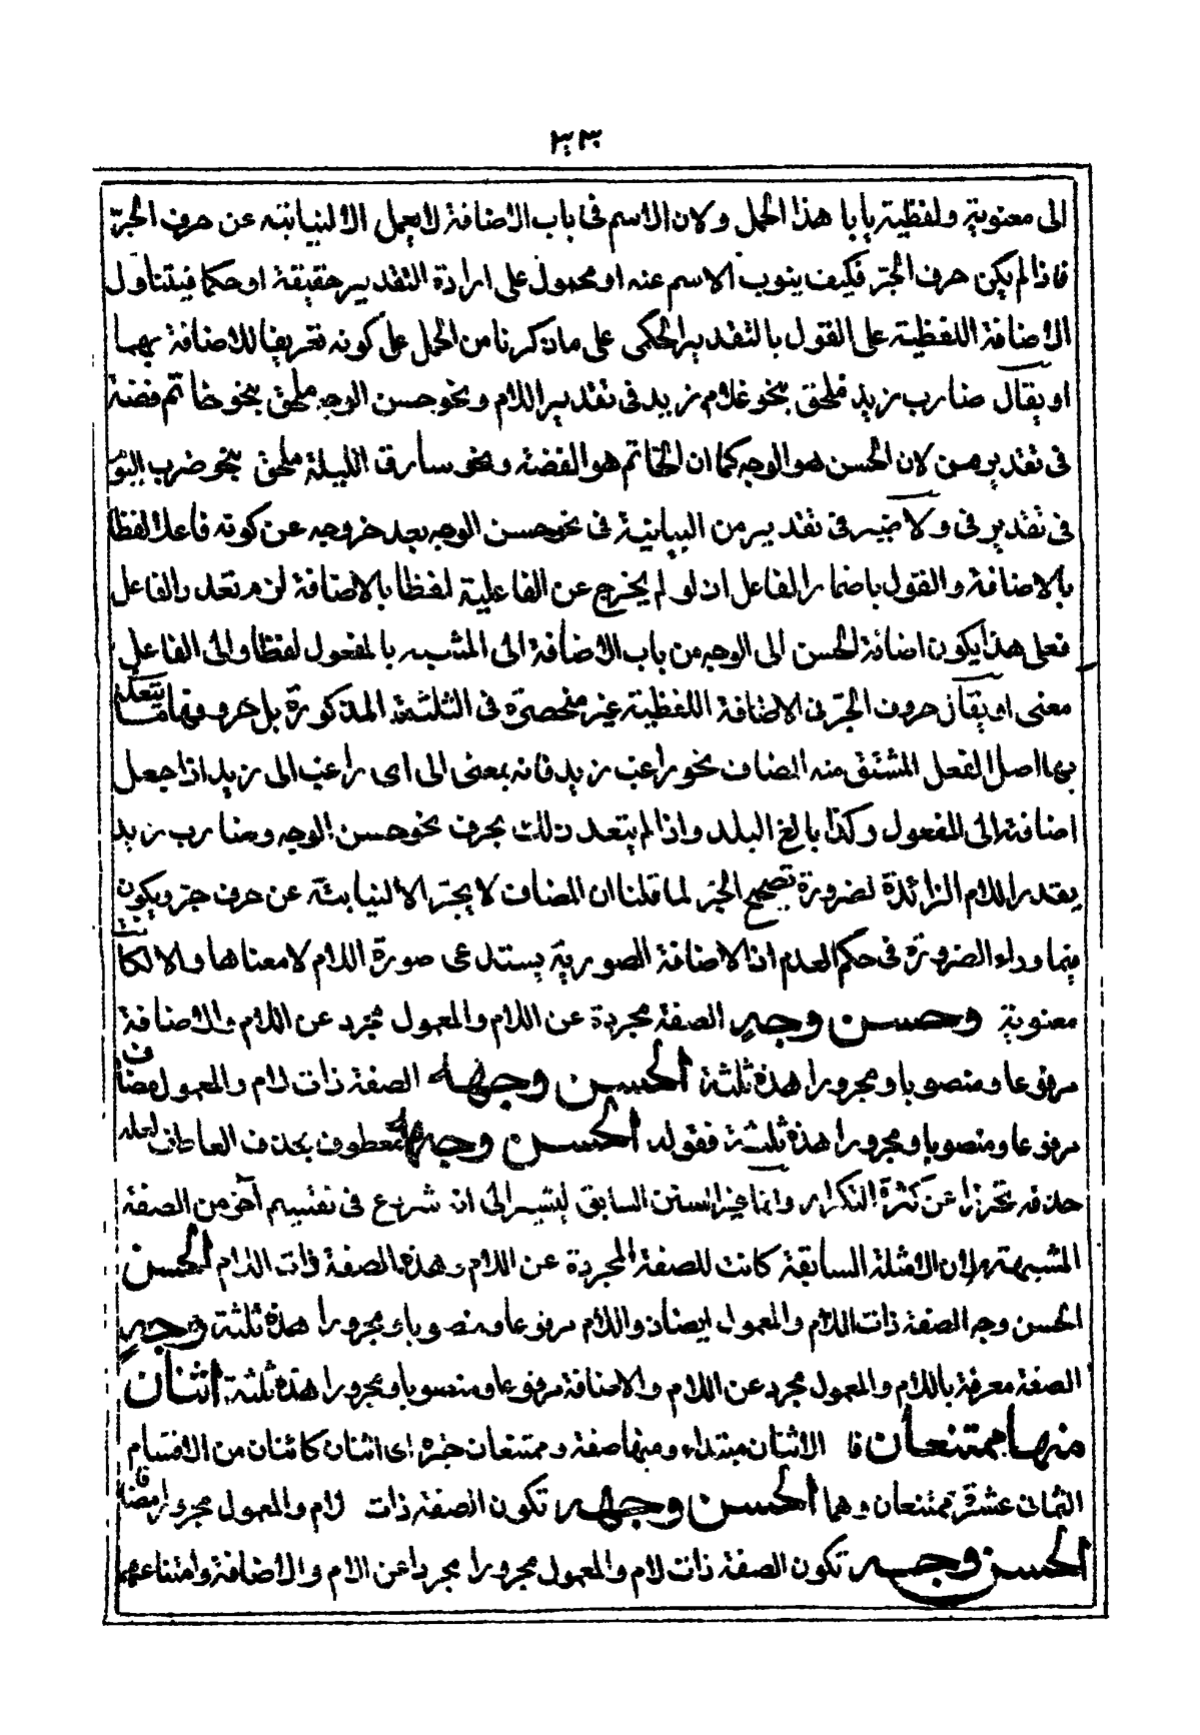 ٣٣
الى معنوية ولفظية يابا هذا الحمل ولان الاسم فى باب الاضافة لا يعمل الا لنيابته عن حرف الجرّ
فاذا لم يكن حرف الجرّ فكيف ينوب الاسم عنه او محمول على ارادة التقدير حقيقة او حكما فيتناول
الاضافة اللفظية على القول بالتقدير الحكمى على ما ذكرنا من الحمل على كونه تعريفا للاضافة بهما
او يقال ضارب زيد ملحق بنحو غلام زيد فى تقدير اللام ونحو حسن الوجه ملحق بنحو خاتم فضة
فى تقدير من لان الحسن هو الوجه كما ان الخاتم هو الفضة ونحو سارق الليلة ملحق بنحو ضرب اليوم
فى تقدير فى ولا ضير فى تقدير من البيانية فى نحو حسن الوجه بعد خروجه عن كونه فاعلا لفظا
بالاضافة والقول باضمار الفاعل اذ لو لم يخرج عن الفاعلية لفظا بالاضافة لزم تعدد الفاعل
فعلى هذا يكون اضافة الحسن الى الوجه من باب الاضافة الى المشبه بالمفعول لفظا والى الفاعل
معنى او يقال حروف الجرّ فى الاضافة اللفظية غير منحصرة فى الثلثة المذكورة بل حروفها ما يتعدى
بها اصل الفعل المشتق منه المضاف نحو راغب زيد فانه بمعنى الى اى راغب الى زيد اذا جعل
اضافة الى المفعول وكذا بالغ البلد واذا لم يتعد ذلك بحرف نحو حسن الوجه وضارب زيد
يقدر اللام الزائدة لضرورة تصحيح الجرّ لما قلنا ان المضاف لا يجرّ الا لنيابته عن حرف جرّ ويكون
فيما وراء الضرورة فى حكم العدم اذ الاضافة الصورية يستدعى صورة اللام لا معناها والا لكانت
معنوية وحسن وجه الصفة مجردة عن اللام والمعمول مجرد عن اللام والاضافة
مرفوعا ومنصوبا ومجرورا هذه ثلثة الحسن وجهه الصفة ذات لام والمعمول مضاف
مرفوعا ومنصوبا ومجرورا هذه ثلثة فقوله الحسن وجهه معطوف بحذف العاطف لعله
حذفه تحرزا عن كثرة التكرار وانما غير السنن السابق ليشير الى انه شروع فى تقسيم آخر من الصفة
المشبهة لان الامثلة السابقة كانت للصفة المجردة عن اللام وهذه الصفة ذات اللام الحسن
الحسن وجه الصفة ذات اللام والمعمول ايضا ذو اللام مرفوعا ومنصوبا ومجرورا هذه ثلثة وجه
الصفة معرفة باللام والمعمول مجرد عن اللام والاضافة مرفوعا ومنصوبا ومجرورا هذه ثلثة اثنان
منها ممتنعان فا الاثنان مبتداء ومنها صفة وممتنعان خبره اى اثنان كائنان من الاقسام
الثمانى عشرة ممتنعان وهما الحسن وجهه تكون الصفة ذات لام والمعمول مجرورا مضافا
الحسن وجه تكون الصفة ذات لام والمعمول مجرورا مجردا عن اللام والاضافة وامتناعهما